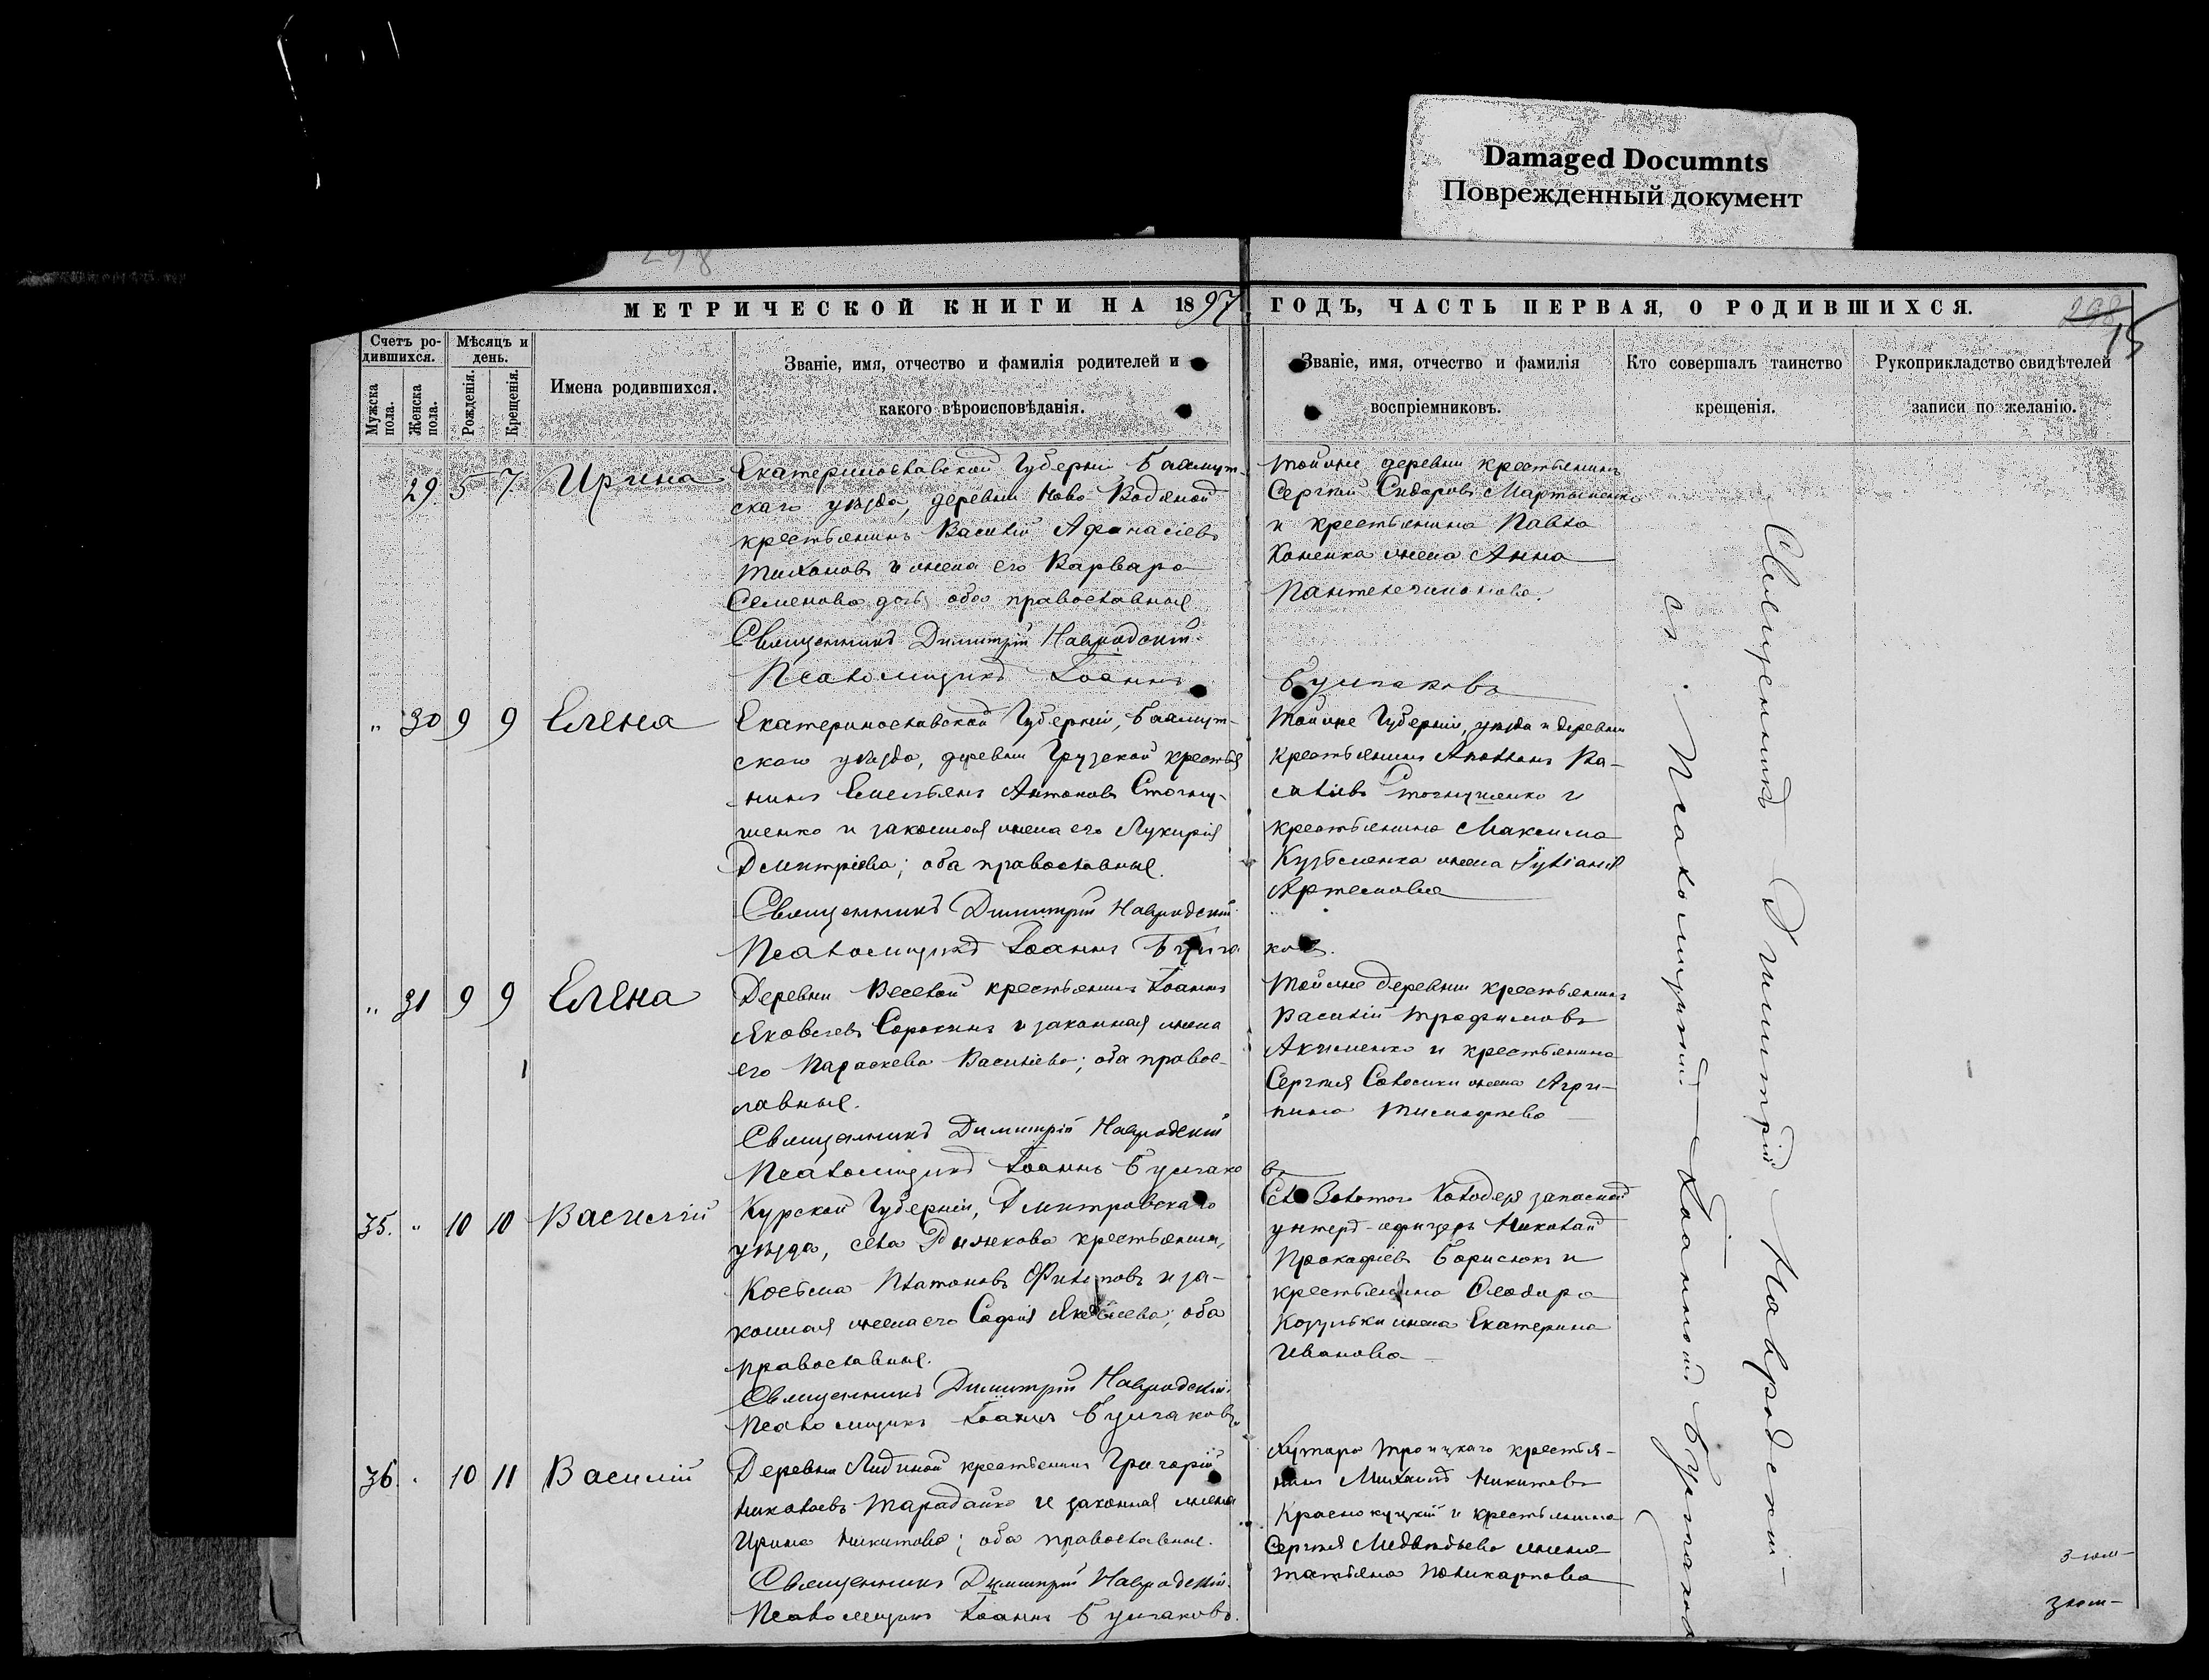 Damaged Documnts
Поврежденный документ
298
МЕТРИЧЕСКОЙ КНИГИ НА 1897 ГОДЪ, ЧАСТЬ ПЕРВАЯ, О РОДИВШИХСЯ.
298
15
Счетъ ро-
дившихся.
Мужска
пола.
Женска
пола.
Мѣсяцъ и
день.
Рожденія.
Крещенія.
Имена родившихся.
Званіе, имя, отчество и фамилія родителей и
какого вѣроисповѣданія.
Званіе, имя, отчество и фамилія
воспріемниковъ.
Кто совершалъ таинство
крещенія.
Рукоприкладство свидѣтелей
записи по желанію.
29. 5 7. Ирина
Екатеринославской Губерніи Бахмут-
скаго уѣзда, деревни Ново Водяной
крестьянинъ Василій Афанасіевъ
Тихоновъ и жена его Варвара
Семенова дочь оба православныя
Священникъ Димитрій Навродскій
Псаломщикъ Іоаннъ
тойже деревни крестьянинъ
Сергѣй Сидоровъ Мартыненко
и крестьянина Павла
Коненка жена Анна
Пантелеимонова.
Булгаковъ
" 30 9 9 Елена
Екатеринославской Губерніи, Бахмут-
скаго уѣзда, деревни Грузской крестья
нинъ Емельянъ Антоновъ Стогну-
шенко и законная жена его Лукирія
Дмитріева; оба православные.
Священникъ Димитрій Навродскій
Псаломщикъ Іоаннъ Булга
Тойже Губерніи, уѣзда и деревни
крестьянинъ Ва-
силіевъ Стогнушенко и
крестьянина Максима
Кузьменка жена Іуліанія
Артемовна
ковъ.
" 31 9 9 Елена
Деревни Веселой крестьянинъ Іоаннъ
Яковлевъ Сорокинъ и законная жена
его Параскева Василіева; оба правос-
лавные.
Священникъ Димитрій Навродскій
Псаломщикъ Іоаннъ Булгако
Тойже деревни крестьянинъ
Василій Трофимовъ
Акименко и крестьянина
Сергѣя жена Агри-
пина Тимофѣева
въ
35. " 10 10 Василій
Курской Губерніи, Дмитровскаго
уѣзда, села крестьянинъ,
Косьма Платоновъ Филиповъ и за-
конная жена его Софія Яковлева; оба
православные.
Священникъ Димитрій Навродскій
Псаломщикъ Іоаннъ Булгаковъ.
Села Золотого Колодезя запасной
унтеръ-офицеръ Николай
Прокофіевъ Борисюкъ и
крестьянина Ѳеодора
Козульки жена Екатерина
Иванова
36. " 10 11 Василій
Деревни Лидиной крестьянинъ Григорій
Николаевъ Тарадайко и законная жена
Ирина Никитова; оба православные.
Священникъ Димитрій Навродскій
Псаломщикъ Іоаннъ Булгаковъ.
Хутора Троицкаго крестья-
нинъ Михаилъ Никитовъ
Краснокуцкій и крестьянина
Сергѣя Медвѣдьева жена
Татьяна Поликарпова
Священникъ Димитрій Навродскій
съ Псаломщикомъ Іоанномъ Булгаковымъ